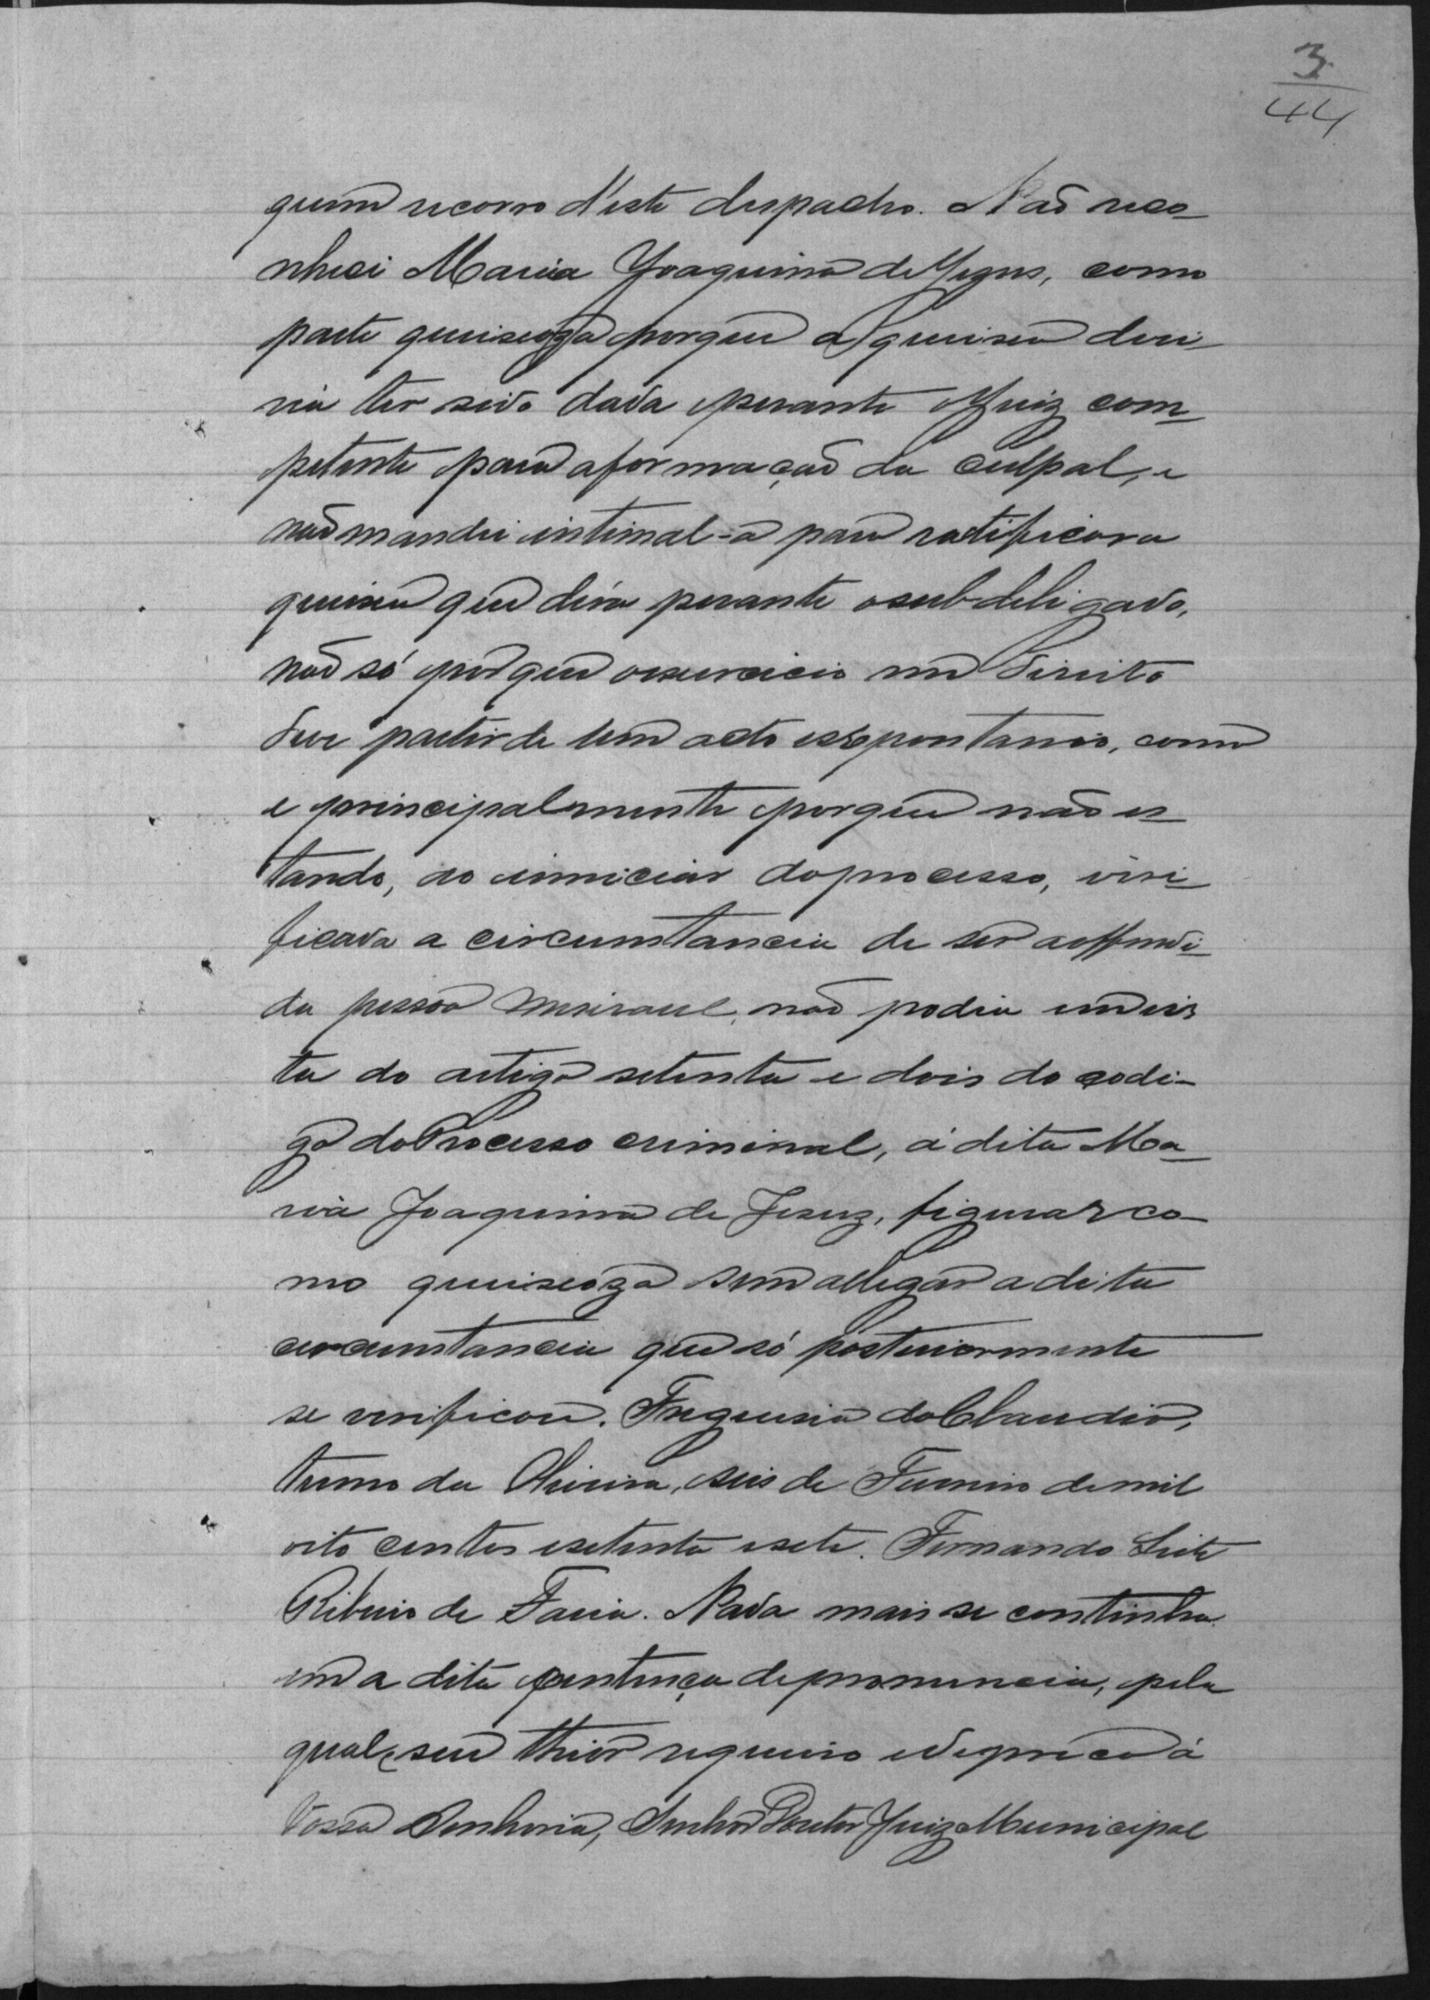 3
44
quem recorro d'este despacho. Não reco-
nheci Maria Joaquina de Jezus, como
parte queixoza porque a queixa deve-
ria ter sido dada perante o Juiz com-
petente para a formação da culpa, e
não mandei intimal-a para ratificar a
queixa que déra perante o subdelegado,
não só porque o exercicio um Direito
deve partir de um acto espontaneo, como
e principalmente porque não es-
tando, ao inniciar do processo, veri-
ficada a circumstancia de ser a offendi-
da pessoa miseravel, não podia em vis
ta do artigo setenta e dois do codi-
go do Processo criminal, á dita Ma-
ria Joaquina de Jesuz, figurar co-
mo queixoza sem allegar a dita
circumstancia que só posteriormente
se verificou. Freguesia do Claudio,
termo da Oliveira, seis de Fevereiro de mil
oito centos e setenta e sete. Fernando Leite
Ribeiro de Faria. Nada mais se continha
em a dita sentença de pronuncia, pela
qual e seu theor requeiro e depreco á
Vossa Senhoria, Senhor Doutor Juiz Municipal